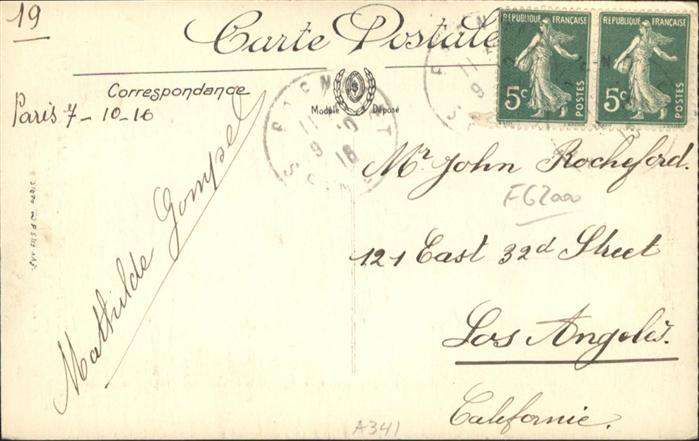 19
Carte Postale
REPUBLIQUE FRANÇAISE
5c
POSTES
REPUBLIQUE FRANÇAISE
5c
POSTES
Correspondance
Modèle Déposé
Paris 7-10-16
Mathilde Gompel
Mr John Rocheford.
F62000
121 East 32d Street
Los Angelès.
Californie.
A341